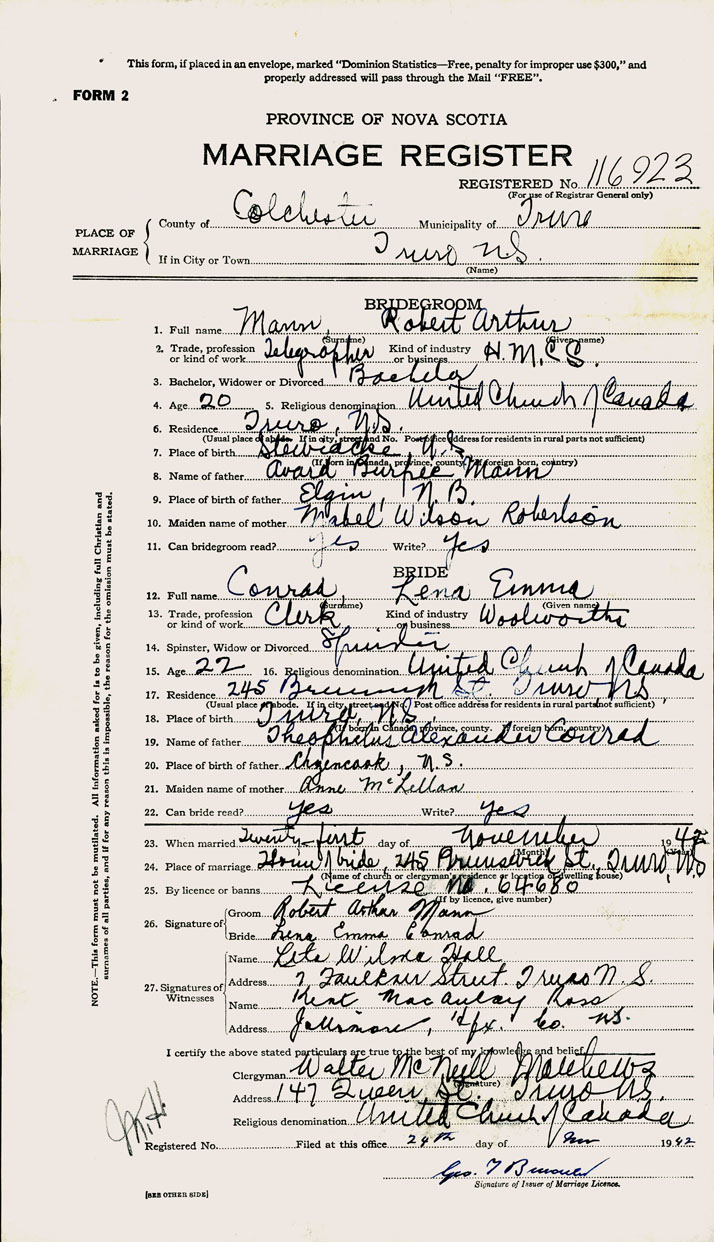 This form, if placed in an envelope, marked "Dominion Statistics—Free, penalty for improper use $300," and
properly addressed will pass through the Mail "FREE".
FORM 2
PROVINCE OF NOVA SCOTIA
MARRIAGE REGISTER
REGISTERED No. 116923
(For use of Registrar General only)
PLACE OF MARRIAGE
County of Colchester Municipality of Truro
If in City or Town Truro N.S.
(Name)
BRIDEGROOM
1. Full name Mann, Robert Arthur
(Surname) (Given name)
2. Trade, profession or kind of work Telegrapher Kind of industry or business H.M.C.S.
3. Bachelor, Widower or Divorced Bachelor
4. Age 20 5. Religious denomination United Church of Canada
6. Residence Truro, N.S.
(Usual place of abode. If in city, street and No. Post office address for residents in rural parts not sufficient)
7. Place of birth Stewiacke, N.S.
(If born in Canada, province, county. If foreign born, country)
8. Name of father Avard Burpee Mann
9. Place of birth of father Elgin, N.B.
10. Maiden name of mother Mabel Wilson Robertson
11. Can bridegroom read? yes Write? yes
BRIDE
12. Full name Conrad, Lena Emma
(Surname) (Given name)
13. Trade, profession or kind of work Clerk Kind of industry or business Woolworths
14. Spinster, Widow or Divorced Spinster
15. Age 22 16. Religious denomination United Church of Canada
17. Residence 245 Brunswick St. Truro, N.S.
(Usual place of abode. If in city, street and No. Post office address for residents in rural parts not sufficient)
18. Place of birth Truro, N.S.
(If born in Canada, province, county. If foreign born, country)
19. Name of father Theophelus Alexander Conrad
20. Place of birth of father Chezencook, N.S.
21. Maiden name of mother Anne McLellan
22. Can bride read? yes Write? yes
23. When married Twenty-first day of November 1942
(Month) (Year)
24. Place of marriage Home of bride, 245 Brunswick St., Truro, N.S
(Name of church or clergyman's residence or location of dwelling house)
25. By licence or banns License No. 64680
(If by licence, give number)
26. Signature of
Groom Robert Arthur Mann
Bride Lena Emma Conrad
27. Signatures of Witnesses
Name Leta Wilma Hall
Address 7 Faulkner Street Truro N.S.
Name Kent MacAulay Ross
Address Hfx. Co. N.S.
I certify the above stated particulars are true to the best of my knowledge and belief.
Clergyman Walter McNeill Matthews
(Signature)
Address 147 Queen St. Truro N.S.
Religious denomination United Church of Canada
Registered No. Filed at this office 24th day of Nov 1942
Geo.
Signature of Issuer of Marriage Licence.
[SEE OTHER SIDE]
NOTE.—This form must not be mutilated. All information asked for is to be given, including full Christian and
surnames of all parties, and if for any reason this is impossible, the reason for the omission must be stated.